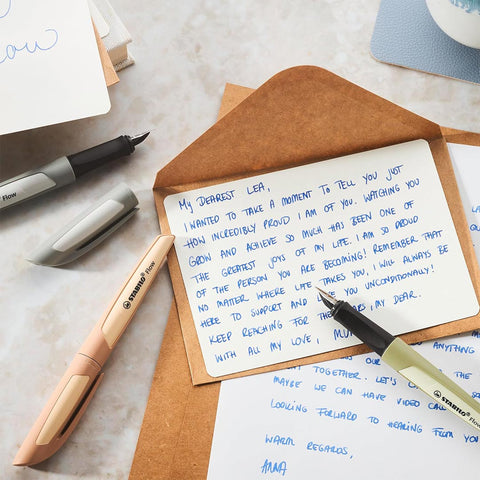 Flow
Flow
STABILO® Flow
MY DEAREST LEA,
I WANTED TO TAKE A MOMENT TO TELL YOU JUST
HOW INCREDIBLY PROUD I AM OF YOU. WATCHING YOU
GROW AND ACHIEVE SO MUCH HAS BEEN ONE OF
THE GREATEST JOYS OF MY LIFE. I AM SO PROUD
OF THE PERSON YOU ARE BECOMING! REMEMBER THAT
NO MATTER WHERE LIFE TAKES YOU, I WILL ALWAYS BE
HERE TO SUPPORT AND YOU UNCONDITIONALLY!
KEEP REACHING FOR THE , MY DEAR.
WITH ALL MY LOVE,
ANYTHING
OUR THE
TOGETHER. LET'S
MAYBE WE CAN HAVE VIDEO CALL
LOOKING FORWARD TO HEARING FROM YOU
WARM REGARDS,
ANNA
STABILO® Flow